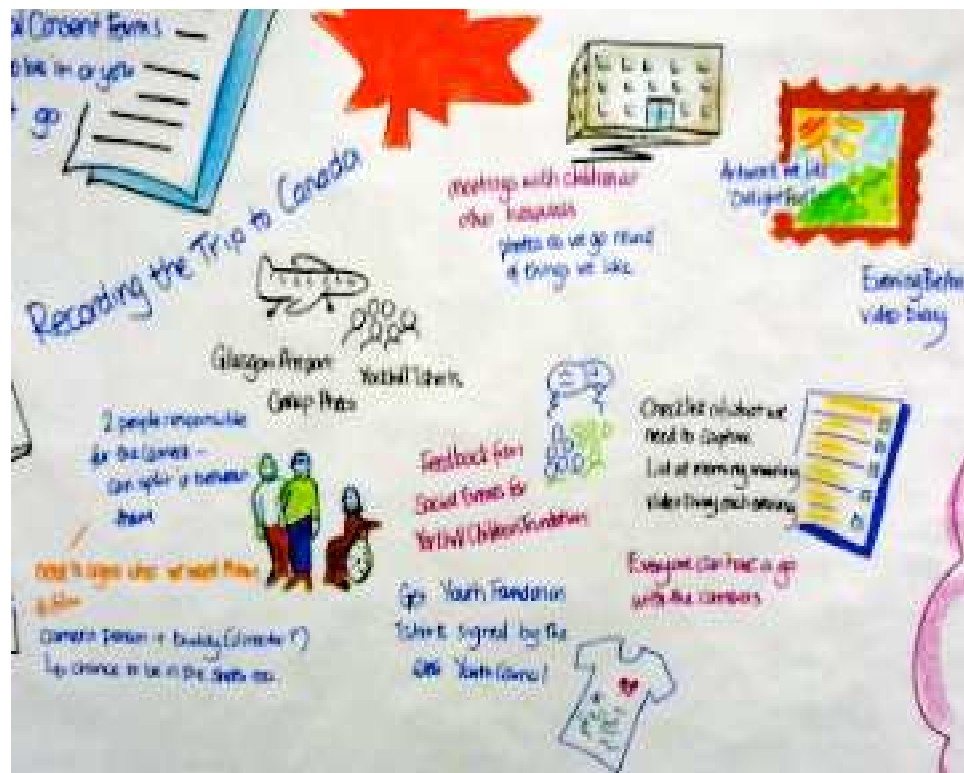 Consent Forms
be in or you
go
Recording the Trip to Canada
meetings with children at
other hospitals
photos as we go round
of things we like
Artwork we like
Evening
video Diary
Glasgow Airport
Group Photo
Yorkhill Tshirts
2 people responsible
for the camera -
can split it between
them
need to agree what we want them
to film
camera person + buddy (director?)
↳ chance to be in the shots too
Feedback from
Social Events for
Yorkhill Children Foundation
Checklist of what we
need to capture
List at morning meeting
Video Diary each evening
Everyone can have a go
with the camera
Get Youth Foundation
Tshirt signed by the
Youth Council